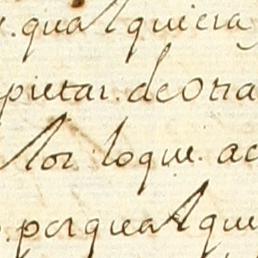 . qualquiera
pietar. de Otra
lor loque. ac
. porqualque